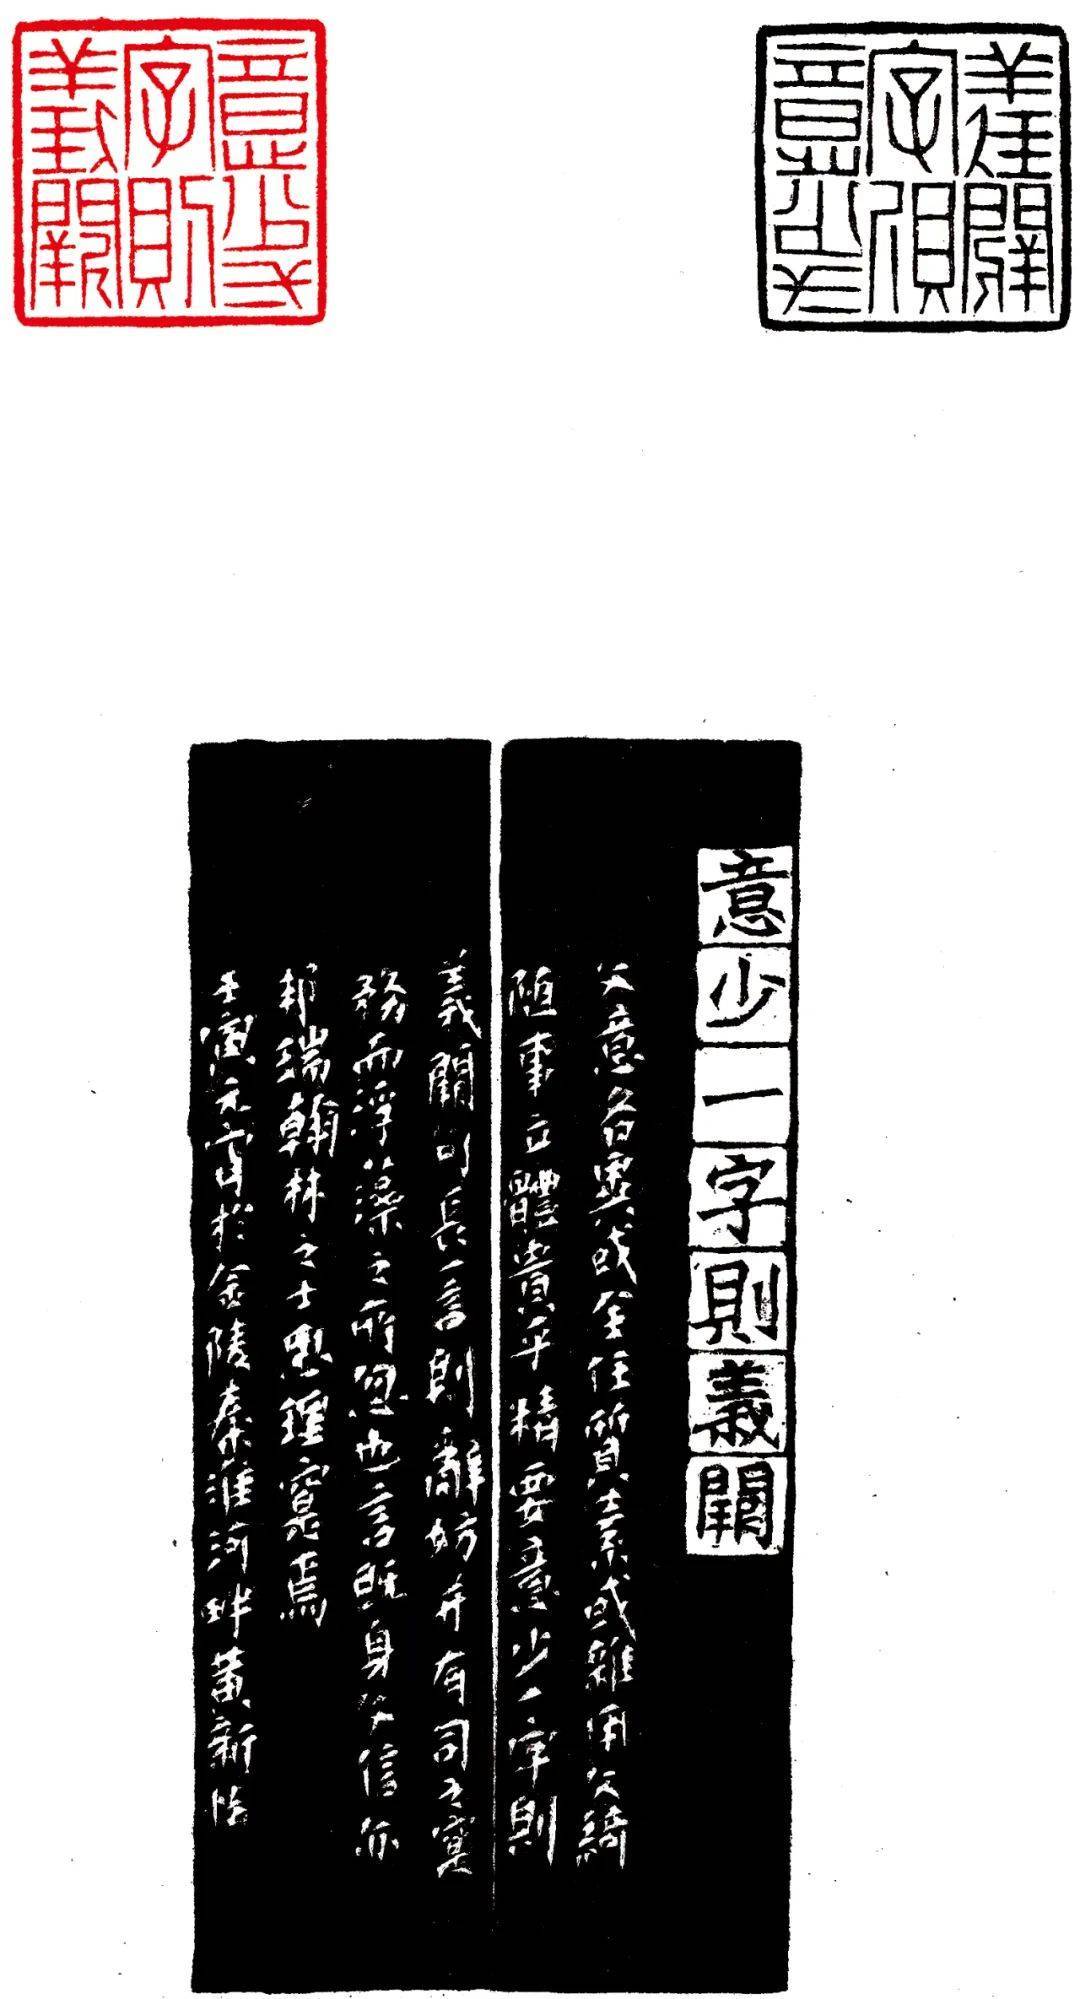 意少弌
字則
義闕
意少弌
字則
義闕
意少一字則義闕
文意各異或全任質素或雜用文綺
隨事立體貴乎精要意少一字則
義闕句長一言則辭妨并有司之實
務而浮藻之所忽也言既身文信亦
邦瑞翰林之士思理實焉
壬寅元宵於金陵秦淮河畔黃新